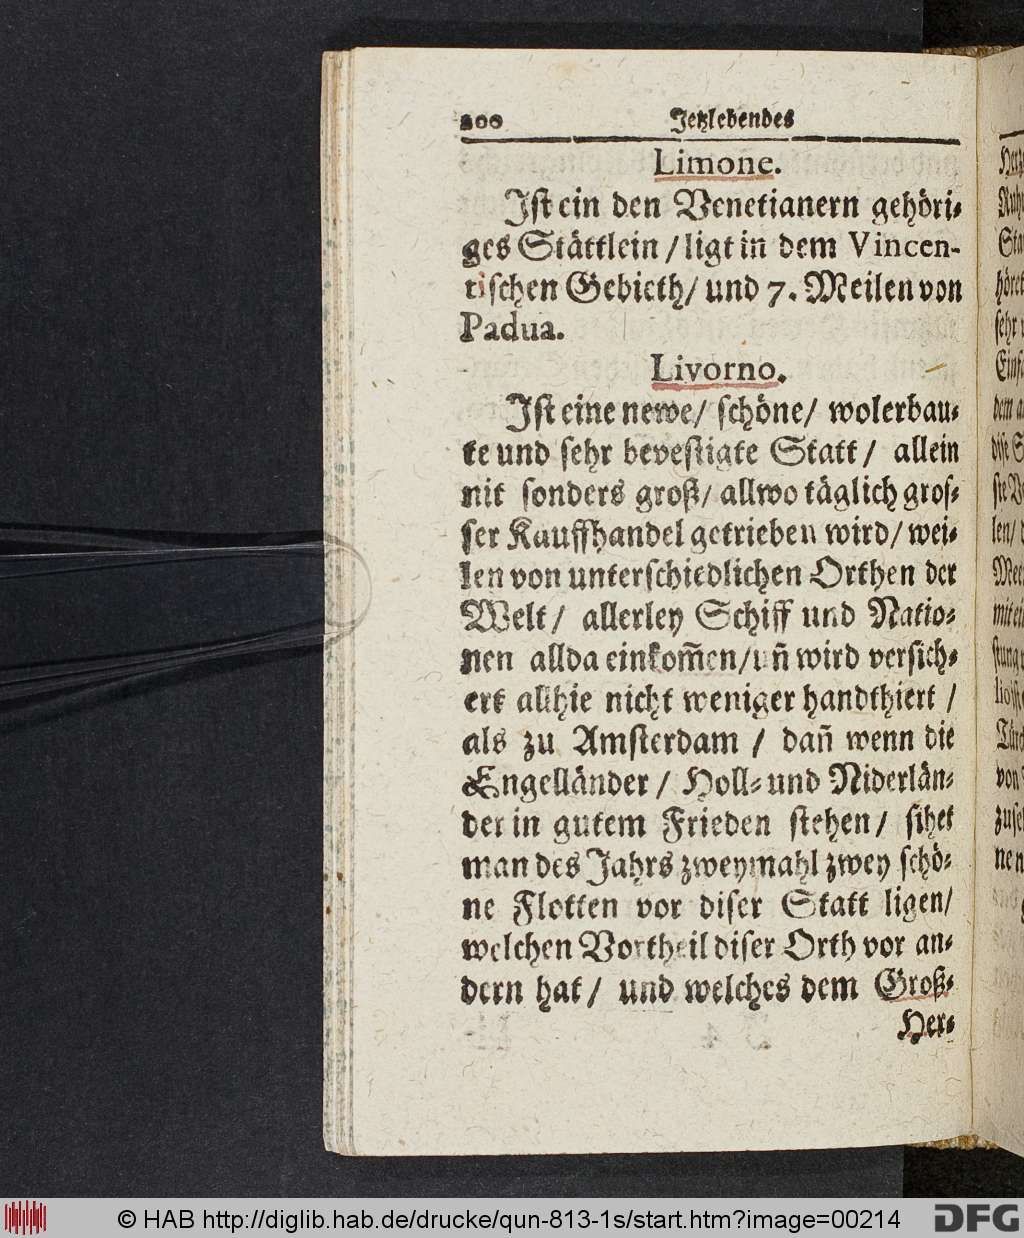 200 Jetzlebendes
Limone.
Ist ein den Venetianern gehöri-
ges Stättlein / ligt in dem Vincen-
tischen Gebieth / und 7. Meilen von
Padua.
Livorno.
Ist eine newe / schöne / wolerbau-
te und sehr bevestigte Statt / allein
nit sonders groß / allwo täglich gros-
ser Kauffhandel getrieben wird / wei-
len von unterschiedlichen Orthen der
Welt / allerley Schiff und Natio-
nen allda einkom̃en / uñ wird versich-
ert allhie nicht weniger handthiert /
als zu Amsterdam / dañ wenn die
Engelländer / Holl- und Niderlän-
der in gutem Frieden stehen / sihet
man des Jahrs zweymahl zwey schö-
ne Flotten vor diser Statt ligen /
welchen Vortheil diser Orth vor an-
dern hat / und welches dem Groß-
Her-
© HAB http://diglib.hab.de/drucke/qun-813-1s/start.htm?image=00214
DFG